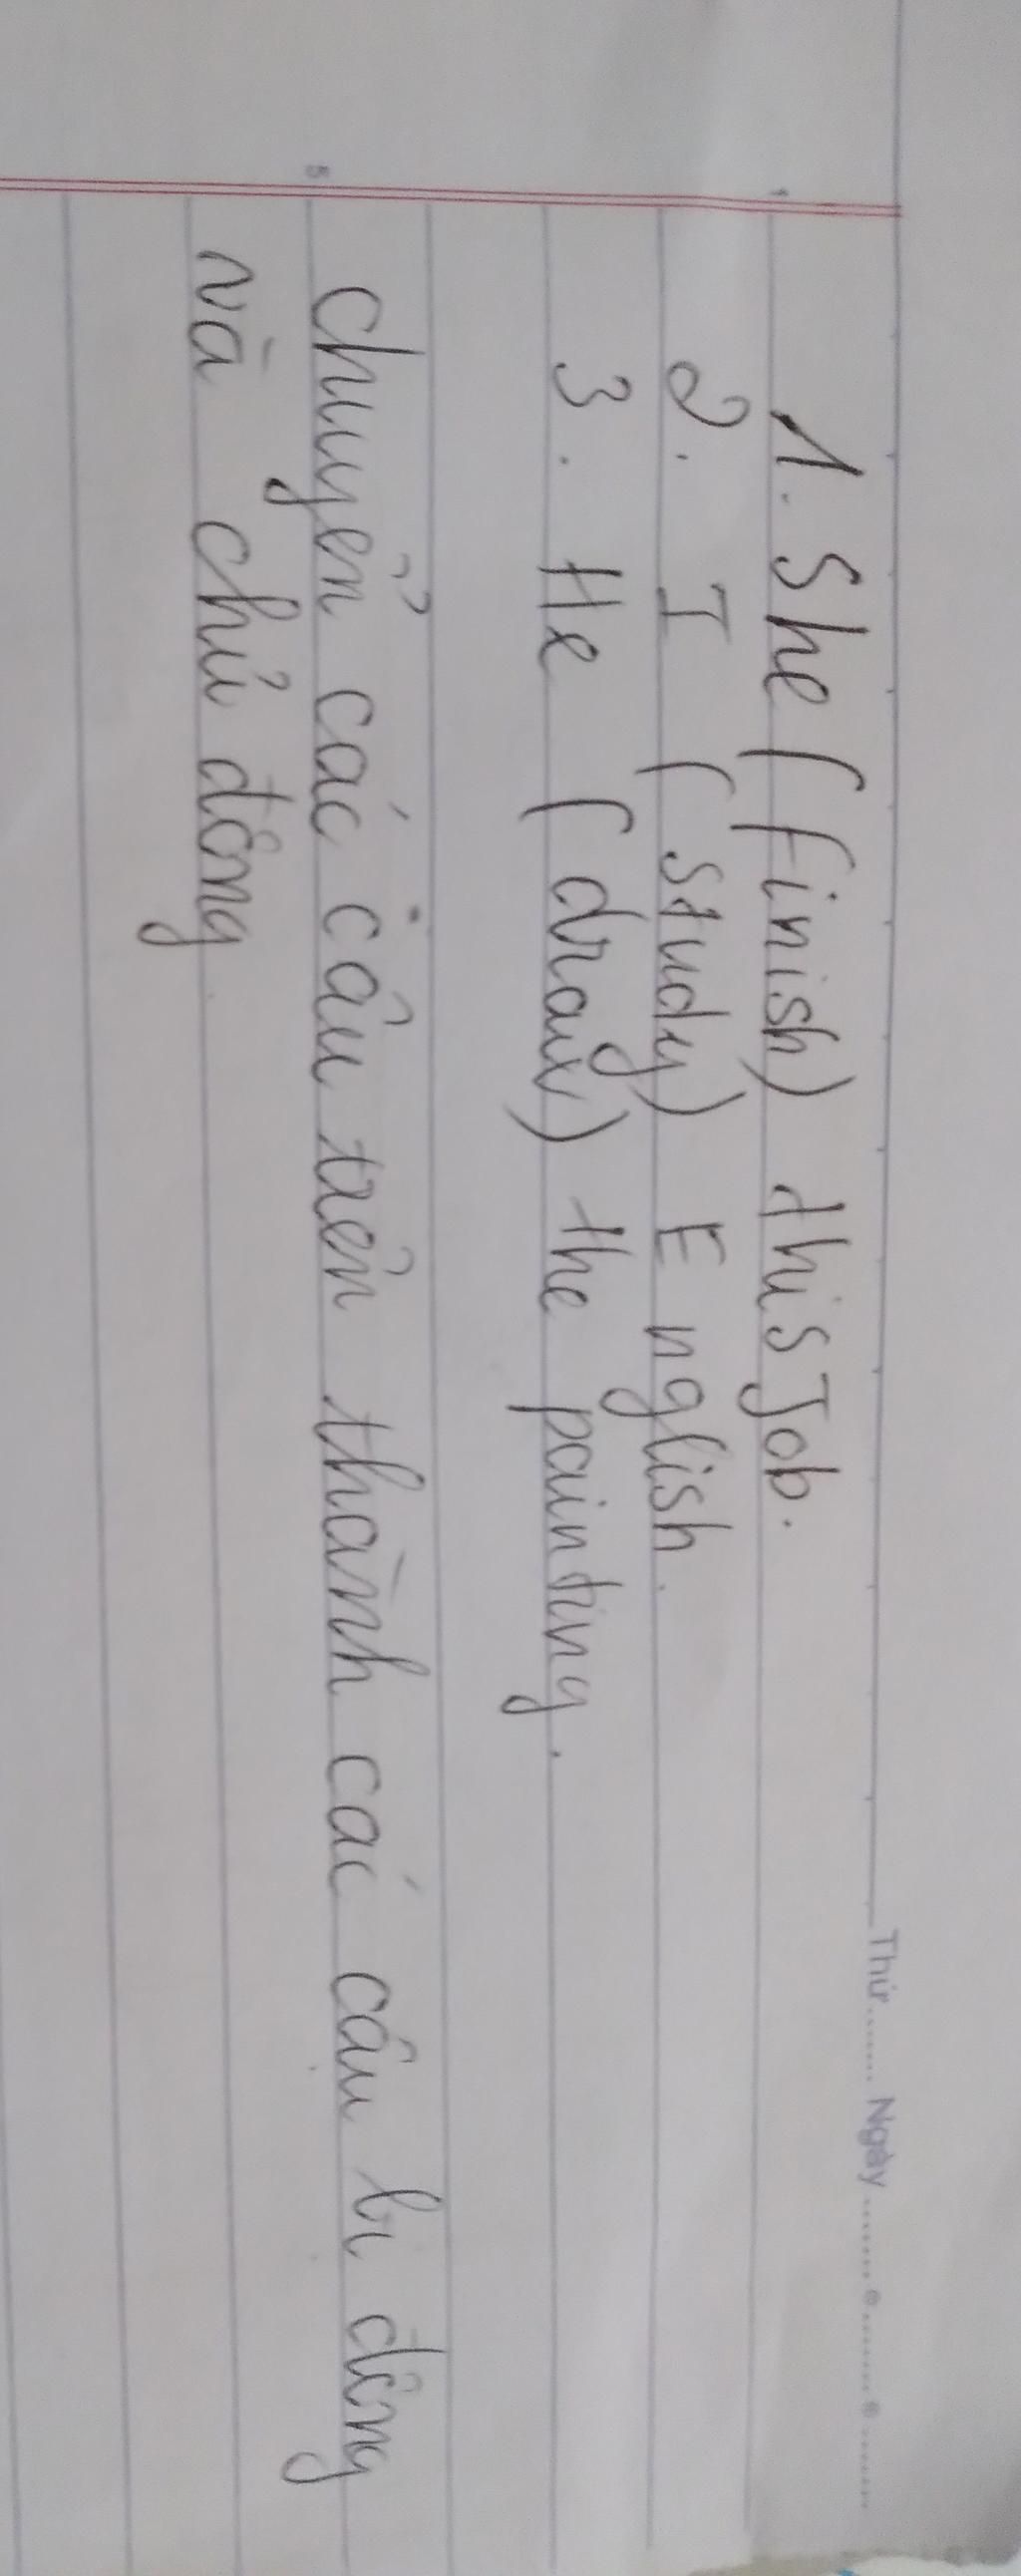 Thứ........ Ngày
1. She (finish) this Job.
2. I (study) English.
3. He (draw) the painting.
chuyển các câu trên thành các câu bị động
và chủ động